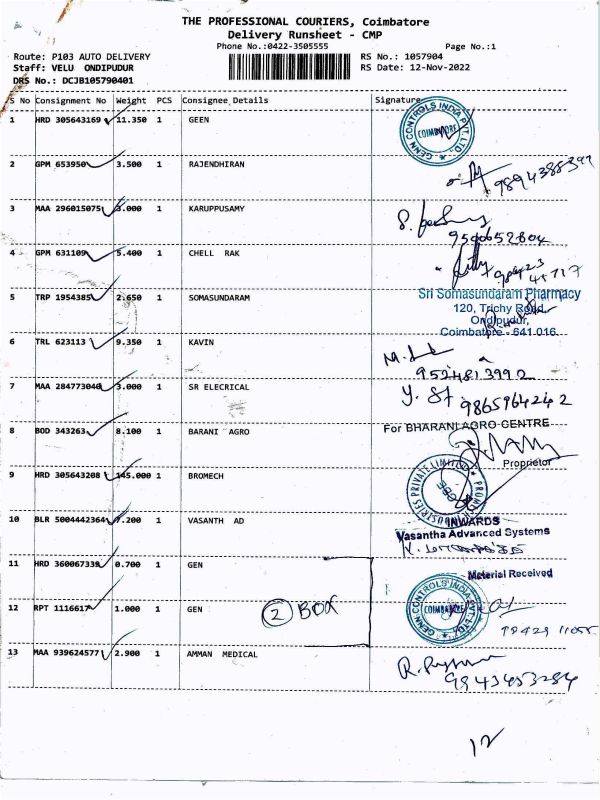 THE PROFESSIONAL COURIERS, Coimbatore
Delivery Runsheet - CMP
Phone No.:0422-3505555 Page No.:1
Route: P103 AUTO DELIVERY RS No.: 1057904
Staff: VELU ONDIPUDUR RS Date: 12-Nov-2022
DRS No.: DCJB105790401
S No Consignment No Weight PCS Consignee Details Signature
1 HRD 305643169 11.350 1 GEEN
GENN CONTROLS INDIA PVT. LTD.
COIMBATORE
2 GPM 653950 3.500 1 RAJENDHIRAN
9894388399
3 MAA 296015075 3.000 1 KARUPPUSAMY
9500652804
4 GPM 631109 5.400 1 CHELL RAK
98423
41717
5 TRP 1954385 2.650 1 SOMASUNDARAM
Sri Somasundaram Pharmacy
120, Trichy Road,
Ondipudur,
Coimbatore - 641 016.
6 TRL 623113 9.350 1 KAVIN
9524813992
7 MAA 284773040 3.000 1 SR ELECRICAL
9865964242
8 BOD 343263 8.100 1 BARANI AGRO
For BHARANI AGRO CENTRE
Proprietor
9 HRD 305643208 145.000 1 BROMECH
INDUSTRIES PRIVATE LIMITED
10 BLR 5004442364 7.200 1 VASANTH AD
INWARDS
Vasantha Advanced Systems
11 HRD 360067339 0.700 1 GEN
Material Received
12 RPT 1116617 1.000 1 GEN
2 BOX
GENN CONTROLS INDIA PVT. LTD.
COIMBATORE
13 MAA 939624577 2.900 1 AMMAN MEDICAL
9843453284
12